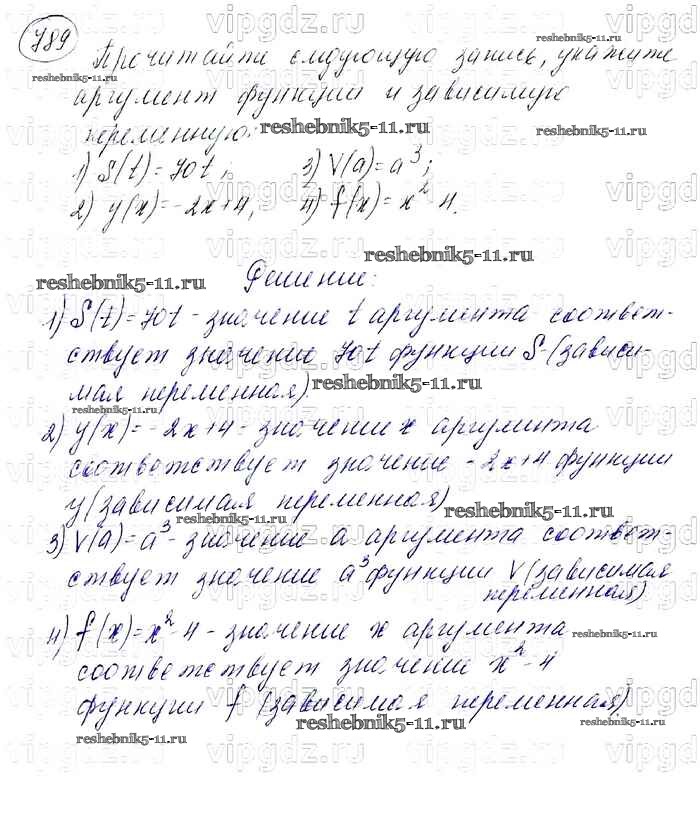 789
Прочитайте следующую запись, укажите
аргумент функции и зависимую
переменную:
1) S(t)=70t; 3) V(a)=a³;
2) y(x)=-2x+4; 4) f(x)=x²-4.
Решение:
1) S(t)=70t - значение t аргумента соответ-
ствует значение 70t функции S-(зависи-
мая переменная)
2) y(x)=-2x+4 - значении x аргумента
соответствует значение -2x+4 функции
y (зависимая переменная)
3) V(a)=a³ - значение a аргумента соответ-
ствует значение a³ функции V (зависимая
переменная)
4) f(x)=x²-4 - значение x аргумента
соответствует значение x²-4
функции f (зависимая переменная)
reshebnik5-11.ru
vipgdz.ru